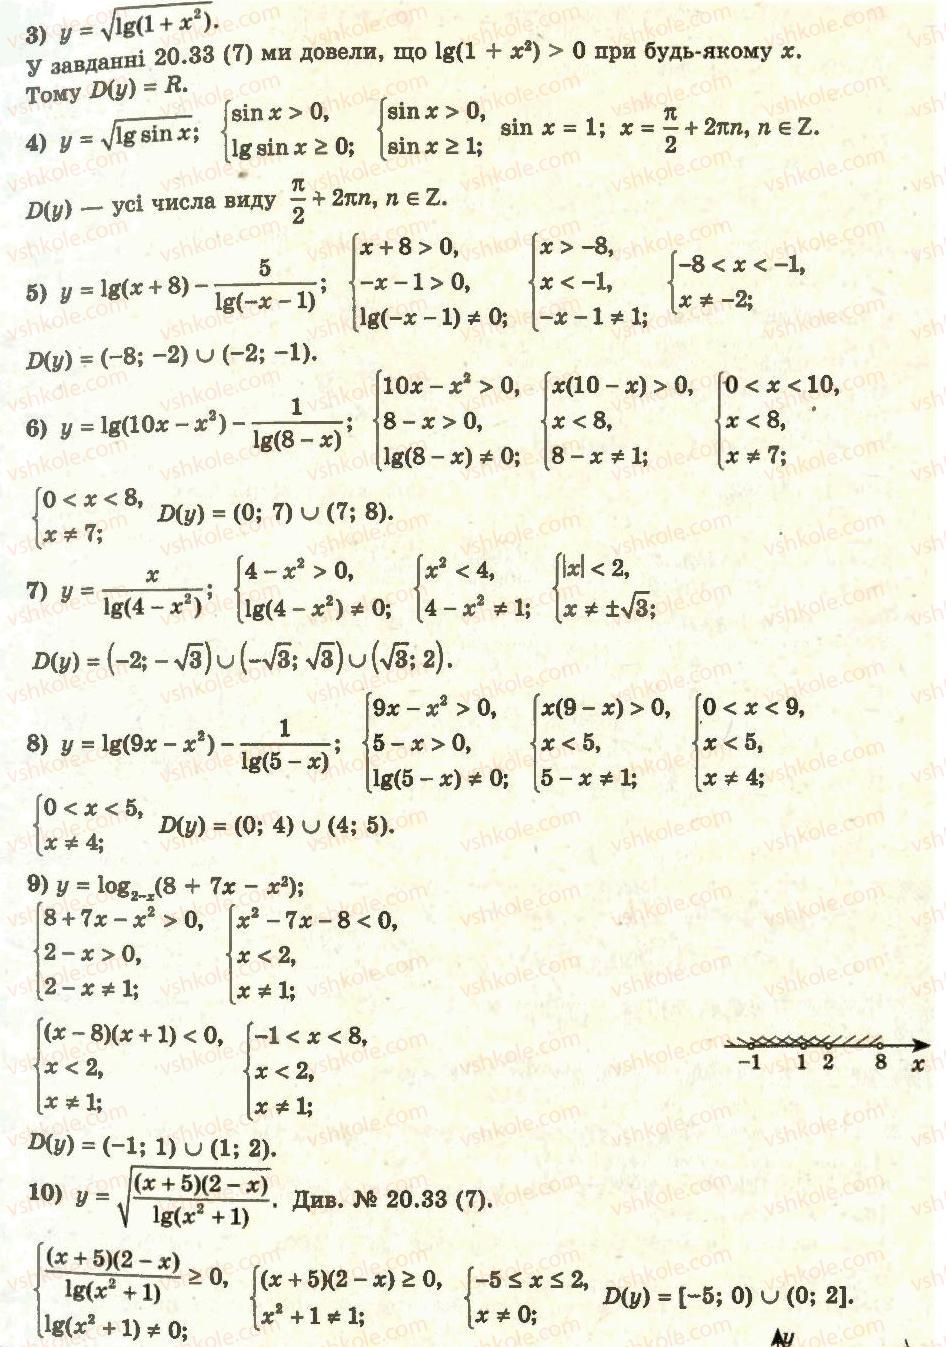 3) y = √(lg(1 + x²)).
У завданні 20.33 (7) ми довели, що lg(1 + x²) > 0 при будь-якому x.
Тому D(y) = R.
4) y = √(lg sin x); {sin x > 0, lg sin x ≥ 0; {sin x > 0, sin x ≥ 1; sin x = 1; x = π/2 + 2πn, n ∈ Z.
D(y) — усі числа виду π/2 + 2πn, n ∈ Z.
5) y = lg(x + 8) − 5/lg(−x − 1); {x + 8 > 0, −x − 1 > 0, lg(−x − 1) ≠ 0; {x > −8, x < −1, −x − 1 ≠ 1; {−8 < x < −1, x ≠ −2;
D(y) = (−8; −2) ∪ (−2; −1).
6) y = lg(10x − x²) − 1/lg(8 − x); {10x − x² > 0, 8 − x > 0, lg(8 − x) ≠ 0; {x(10 − x) > 0, x < 8, 8 − x ≠ 1; {0 < x < 10, x < 8, x ≠ 7;
{0 < x < 8, x ≠ 7; D(y) = (0; 7) ∪ (7; 8).
7) y = x/lg(4 − x²); {4 − x² > 0, lg(4 − x²) ≠ 0; {x² < 4, 4 − x² ≠ 1; {|x| < 2, x ≠ ±√3;
D(y) = (−2; −√3) ∪ (−√3; √3) ∪ (√3; 2).
8) y = lg(9x − x²) − 1/lg(5 − x); {9x − x² > 0, 5 − x > 0, lg(5 − x) ≠ 0; {x(9 − x) > 0, x < 5, 5 − x ≠ 1; {0 < x < 9, x < 5, x ≠ 4;
{0 < x < 5, x ≠ 4; D(y) = (0; 4) ∪ (4; 5).
9) y = log₂₋ₓ(8 + 7x − x²);
{8 + 7x − x² > 0, 2 − x > 0, 2 − x ≠ 1; {x² − 7x − 8 < 0, x < 2, x ≠ 1;
{(x − 8)(x + 1) < 0, x < 2, x ≠ 1; {−1 < x < 8, x < 2, x ≠ 1;
−1 1 2 8 x
D(y) = (−1; 1) ∪ (1; 2).
10) y = √((x + 5)(2 − x)/lg(x² + 1)). Див. № 20.33 (7).
{(x + 5)(2 − x)/lg(x² + 1) ≥ 0, lg(x² + 1) ≠ 0; {(x + 5)(2 − x) ≥ 0, x² + 1 ≠ 1; {−5 ≤ x ≤ 2, x ≠ 0; D(y) = [−5; 0) ∪ (0; 2].
y
vshkole.com